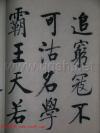 追窮寇不
可沽名學
霸王天若